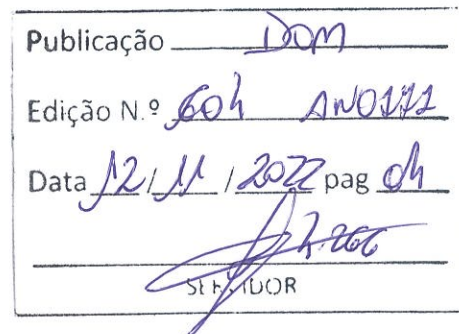 Publicação DOM
Edição N.º 604 ANO III
Data 12/11/2022 pag 04
2.266
SERVIDOR